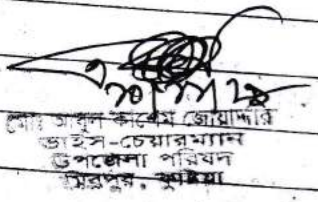 মোঃ আবুল কাশেম জোয়ার্দ্দার
ভাইস-চেয়ারম্যান
উপজেলা পরিষদ
মিরপুর, কুষ্টিয়া